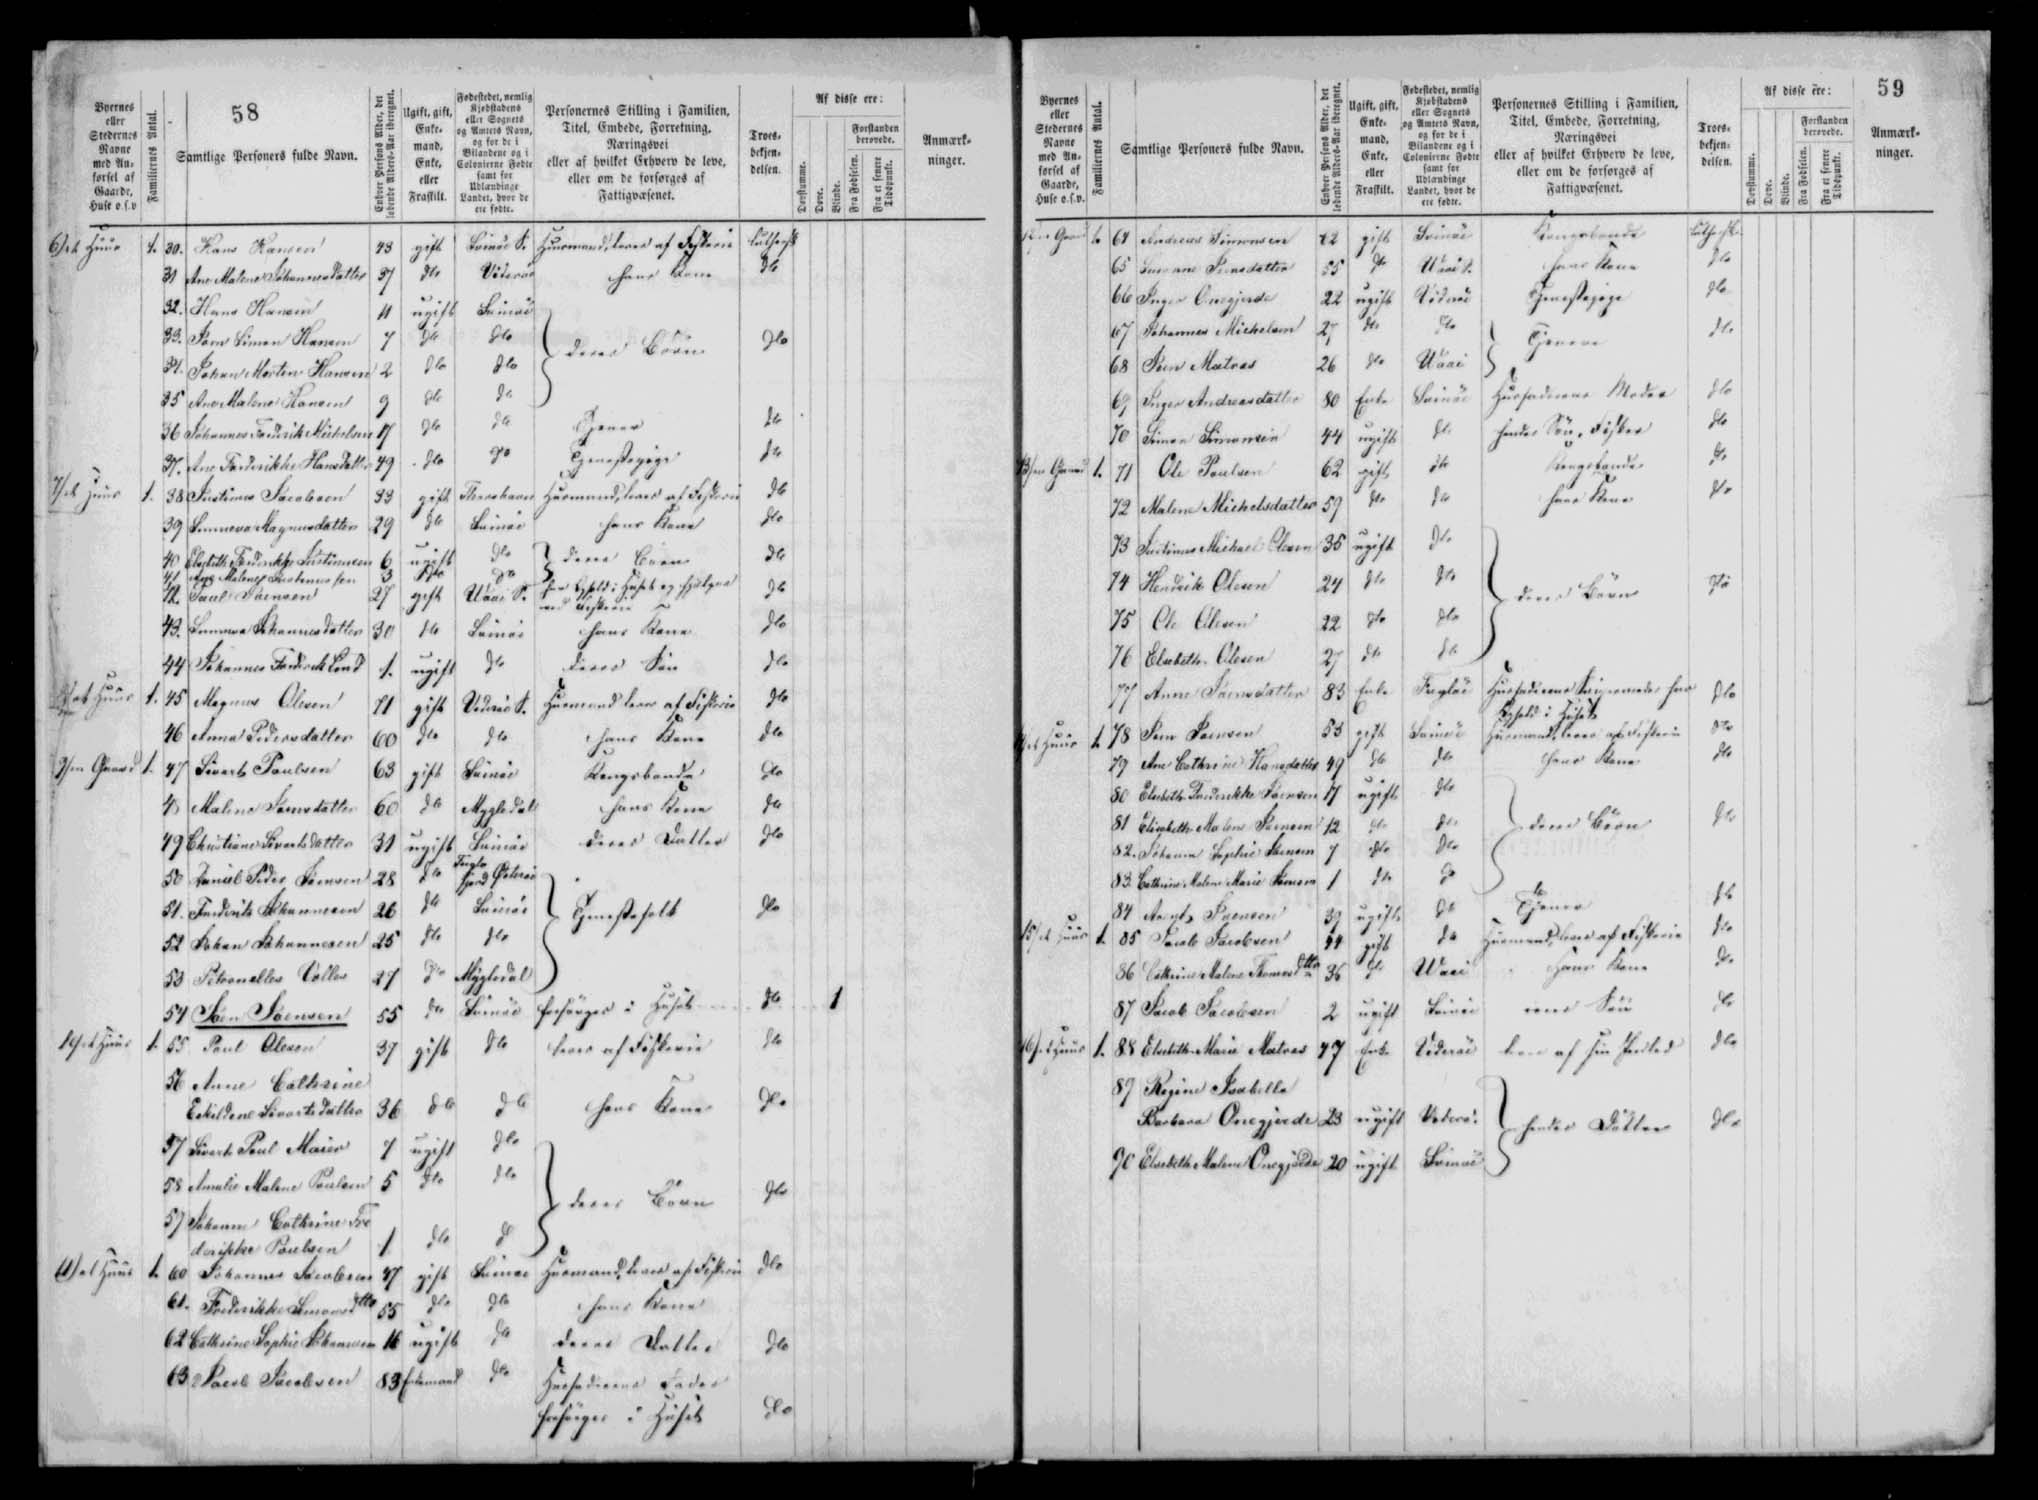 58
Byernes eller Stedernes Navne med Anførsel af Gaarde, Huse o.s.v
Familiernes Antal.
Samtlige Personers fulde Navn.
Enhver Persons Alder, det løbende Alders-Aar iberegnet.
Ugift, gift, Enkemand, Enke, eller Fraskilt.
Fødestedet, nemlig Kjøbstadens eller Sognets og Amtets Navn, og for de i Bilandene og i Colonierne Fødte samt for Udlændinge Landet, hvor de ere fødte.
Personernes Stilling i Familien, Titel, Embede, Forretning, Næringsvei eller af hvilket Erhverv de leve, eller om de forsørges af Fattigvæsenet.
Troesbekjendelsen.
Af disse ere:
Døvstumme.
Døve.
Blinde.
Forstanden berøvede.
Fra Fødselen.
Fra et senere Tidspunkt.
Anmærkninger.
6) et Huus 1. 30. Hans Hansen 43 gift Svinöe S. Huusmand, lever af Fiskerie Luthersk
31 Ane Malene Johannesdatter 37 dto Viderøe hans Kone dto
32. Hans Hansen 11 ugift Svinöe
33. Joen Simon Hansen 7 dto dto deres Börn dto
34. Johan Morten Hansen 2 dto dto
35 Ane Malene Hansen 9 dto dto
36 Johannes Frederik Michelsen 17 dto dto Tjener dto
37. Ane Frederikke Hansdatter 49 dto dto Tjenestepige dto
7) et Huus 1. 38 Justinus Jacobsen 33 gift Thorshavn Huusmand, lever af Fiskerie dto
39 Sunneva Magnusdatter 29 dto Svinöe hans Kone dto
40 Elsebeth Frederikke Justinussen 6 ugift dto deres Börn dto
41 Ane Malene Justinussen 3 dto dto
42. Poul Joensen 27 gift Uaae S. har Ophold i Huset og hjelper ved Fiskerie dto
43. Sunneva Johannesdatter 30 dto Svinöe hans Kone dto
44 Johannes Frederik Lond 1. ugift dto deres Sön dto
8) et Huus 1. 45 Magnus Olesen 71 gift Viderøe S. Huusmand lever af Fiskerie dto
46 Anna Pedersdatter 60 dto dto hans Kone dto
9) en Gaard 1. 47 Sivert Poulsen 63 gift Svinöe Kongsbonde dto
48 Malene Joensdatter 60 dto Mygledal hans Kone dto
49 Christiane Sivertsdatter 31 ugift Svinöe deres Datter dto
50 Daniel Peder Joensen 28 dto Fuglefjord Østerøe
51. Frederik Johannesen 26 dto Svinöe Tjenestefolk dto
52 Johan Johannesen 25 dto dto
53 Petronelle Volles 27 dto Mygledal
54 Joen Joensen 55 dto Svinöe forsörges i Huset dto 1
10) et Huus 1. 55 Poul Olesen 37 gift dto lever af Fiskerie dto
56 Anne Cathrine
Eskildine Sivertsdatter 36 dto dto hans Kone dto
57 Sivert Poul Maier 7 ugift dto
58 Amalie Malene Poulsen 5 dto dto deres Börn dto
59 Johanne Cathrine Fre
derikke Poulsen 1 dto d
11) et Huus 1. 60 Johannes Jacobsen 47 gift Svinöe Huusmand, lever af Fiskerie dto
61. Frederikke Simonsdtter 55 dto dto hans Kone
62 Cathrine Sophie Johannesen 16 ugift dto deres Datter dto
63 Jacob Jacobsen 83 Enkemand dto Huusfaderens Fader
forsörges i Huset dto
59
Byernes eller Stedernes Navne med Anførsel af Gaarde, Huse o.s.v.
Familiernes Antal.
Samtlige Personers fulde Navn.
Enhver Persons Alder, det løbende Alders-Aar iberegnet.
Ugift, gift, Enkemand, Enke, eller Fraskilt.
Fødestedet, nemlig Kjøbstadens eller Sognets og Amtets Navn, og for de i Bilandene og i Colonierne Fødte samt for Udlændinge Landet, hvor de ere fødte.
Personernes Stilling i Familien, Titel, Embede, Forretning, Næringsvei eller af hvilket Erhverv de leve, eller om de forsørges af Fattigvæsenet.
Troesbekjendelsen.
Af disse ere:
Døvstumme.
Døve.
Blinde.
Forstanden berøvede.
Fra Fødselen.
Fra et senere Tidspunkt.
Anmærkninger.
12 en Gaard 1. 64 Andreas Simonsen 42 gift Svinöe Kongsbonde Luthersk
65 Susanne Joensdatter 55 dto Uaae S. hans Kone dto
66 Inger Onegjerde 22 ugift Viderøe Tjenestepige dto
67 Johannes Michelsen 27 dto dto Tjenere dto
68 Joen Matras 26 dto Uaae
69 Inger Andreasdatter 80 Enke Svinöe Huusfaderens Moder dto
70 Simon Simonsen 44 ugift dto hendes Sön, Fisker dto
13) en Gaard 1. 71 Ole Poulsen 62 gift dto Kongsbonde dto
72 Malene Michelsdatter 59 dto dto hans Kone dto
73 Justinus Michael Olesen 35 ugift dto
74 Hendrik Olesen 24 dto dto deres Börn dto
75 Ole Olesen 22 dto dto
76 Elsebeth Olesen 27 dto dto
77 Anne Joensdatter 83 Enke Fugløe Huusfaderens Svigermoder har Ophold i Huset dto
14) et Huus 1. 78 Joen Joensen 53 gift Svinöe Huusmand, lever af Fiskerie dto
79 Ane Cathrine Hansdatter 49 dto dto hans Kone dto
80 Elsebeth Frederikke Joensen 17 ugift dto
81 Elisabeth Malene Joensen 12 dto dto deres Börn dto
82. Johanne Sophie Joensen 7 dto dto
83. Cathrine Malene Marie Joensen 1 dto do
84 Joensen 39 ugift dto Tjener dto
15) et Huus 1. 85 Jacob Jacobsen 44 gift dto Huusmand, lever af Fiskerie dto
86 Cathrine Malene Thomasdtter 36 dto Uaae Hans Kone dto
87 Jacob Jacobsen 2 ugift Svinöe deres Sön dto
16) et Huus 1. 88 Elsebeth Marie Matras 47 Enke Viderøe lever af sin Jordlod dto
89 Regine Isabelle
Barbara Onegjerde 23 ugift Viderøe hendes Döttre dto
90 Elsebeth Malene Onegjerde 20 ugift Svinöe